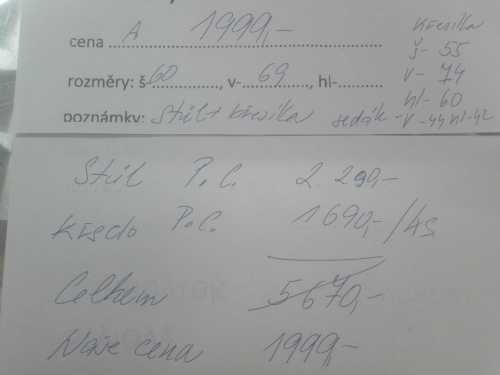 cena A 1999,-
rozměry: š-60, v-69, hl-
poznámky: Stůl + křesílka
křesílka
š- 55
v- 74
hl- 60
sedák - v-44 hl-42
Stůl P.C. 2.290,-
křeslo P.C. 1690,-/ks
Celkem 5670,-
Naše cena 1999,-